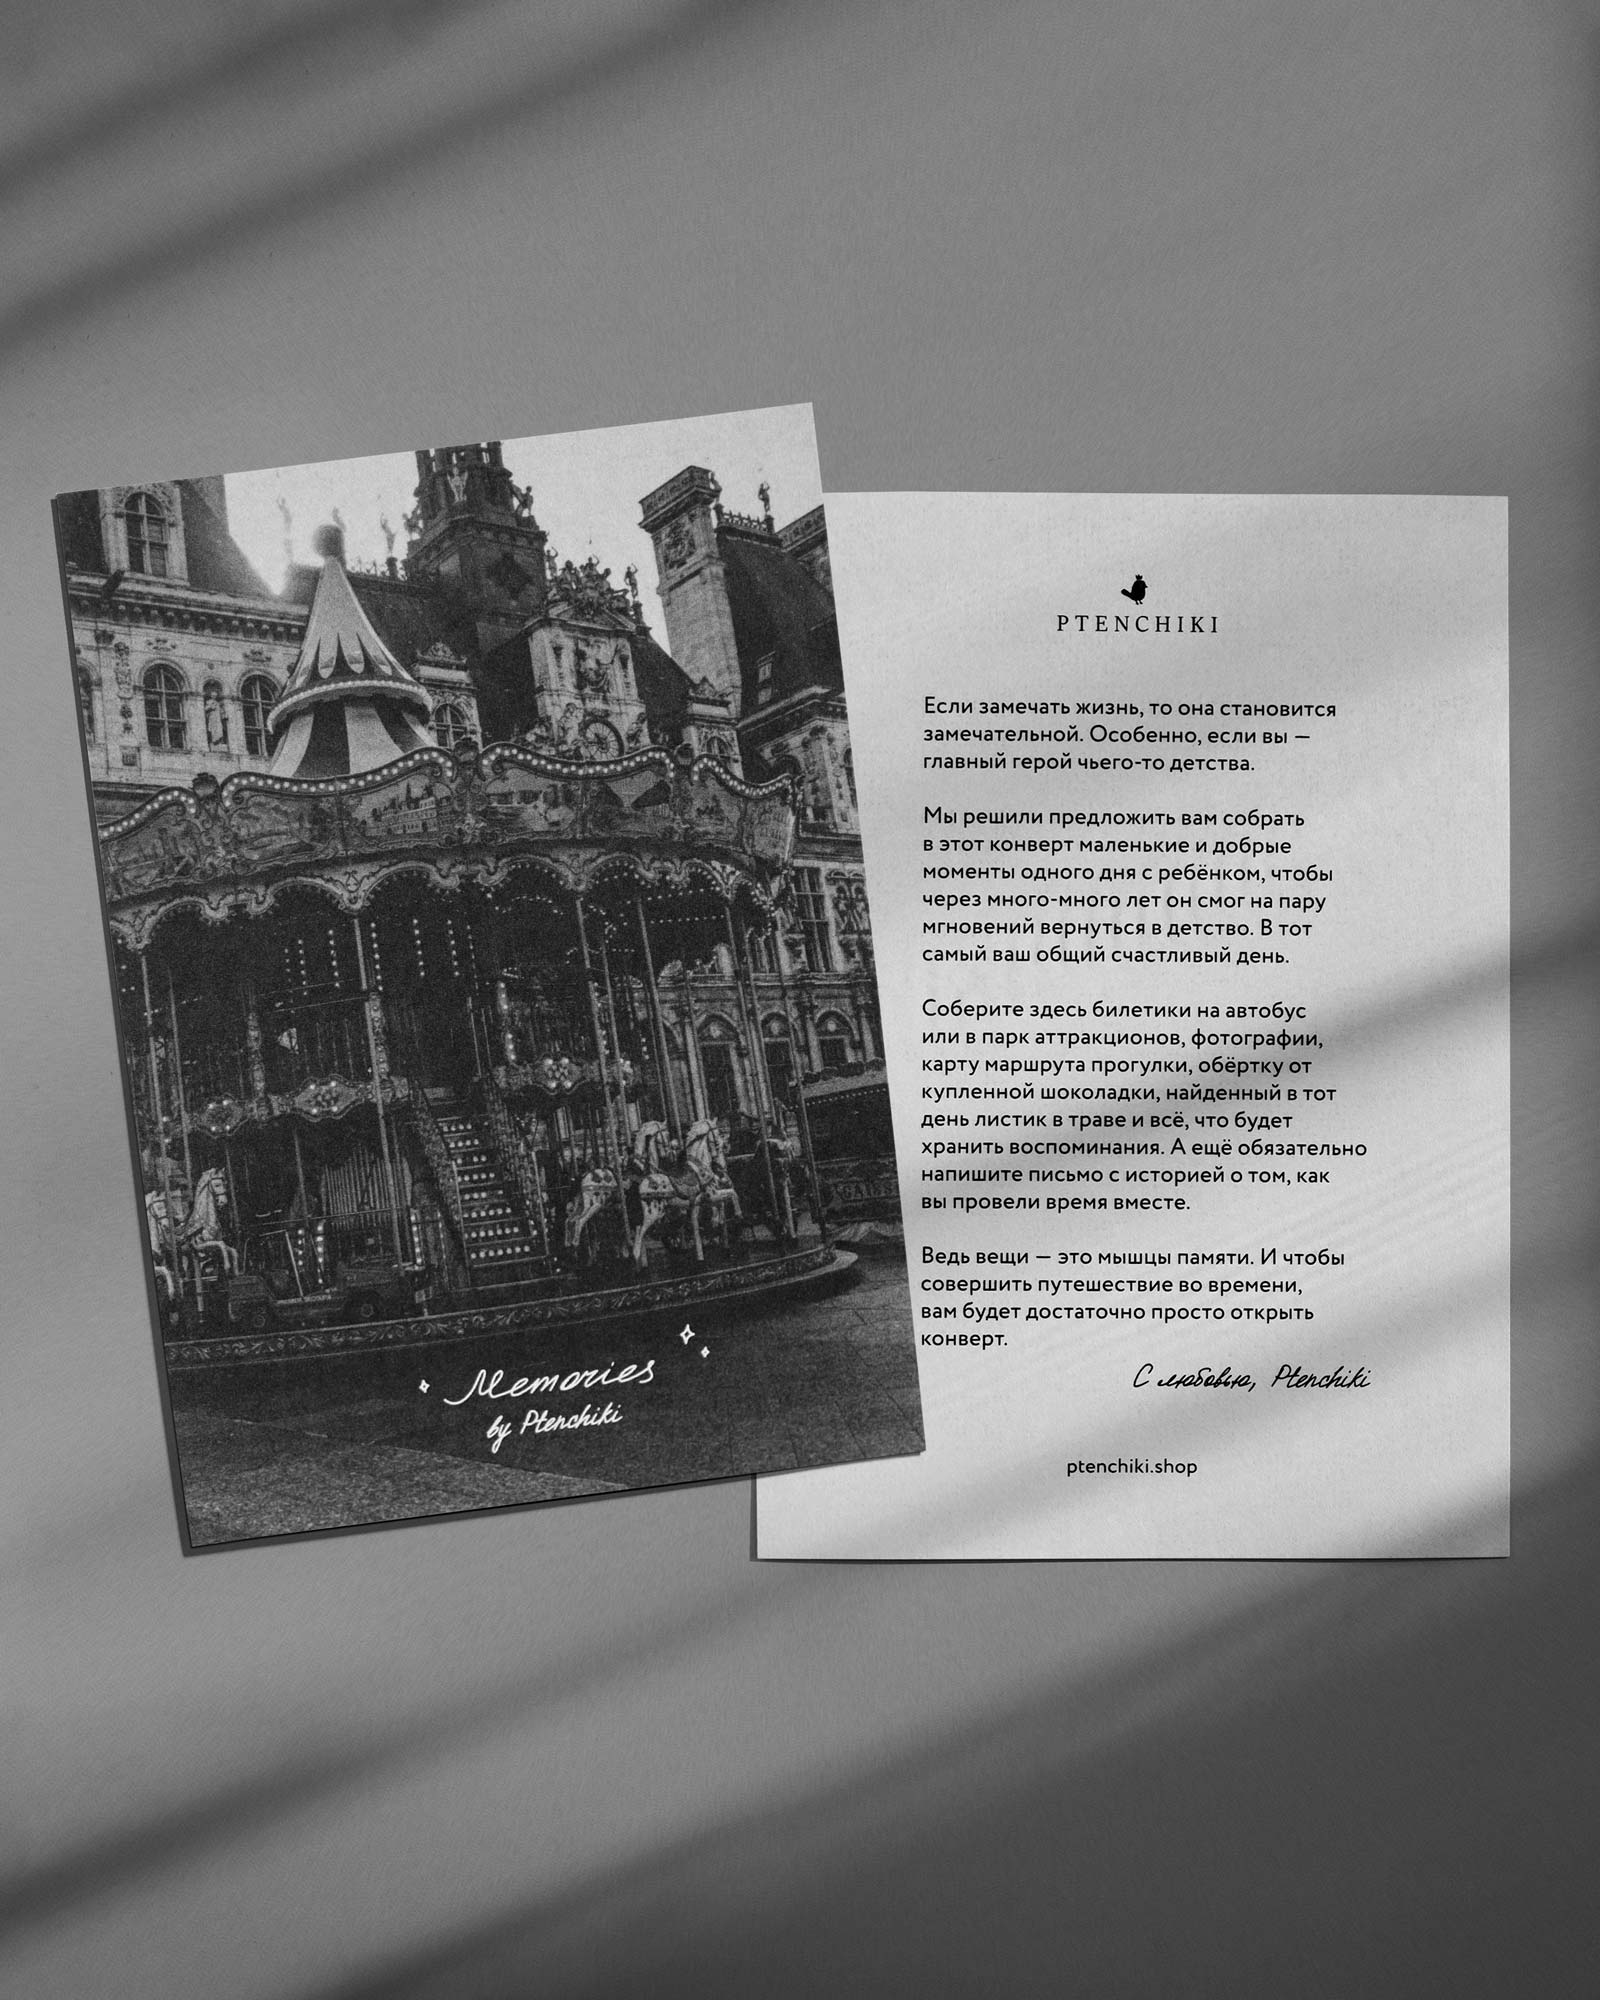 Memories
by Ptenchiki
PTENCHIKI
Если замечать жизнь, то она становится
замечательной. Особенно, если вы —
главный герой чьего-то детства.
Мы решили предложить вам собрать
в этот конверт маленькие и добрые
моменты одного дня с ребёнком, чтобы
через много-много лет он смог на пару
мгновений вернуться в детство. В тот
самый ваш общий счастливый день.
Соберите здесь билетики на автобус
или в парк аттракционов, фотографии,
карту маршрута прогулки, обёртку от
купленной шоколадки, найденный в тот
день листик в траве и всё, что будет
хранить воспоминания. А ещё обязательно
напишите письмо с историей о том, как
вы провели время вместе.
Ведь вещи — это мышцы памяти. И чтобы
совершить путешествие во времени,
вам будет достаточно просто открыть
конверт.
С любовью, Ptenchiki
ptenchiki.shop